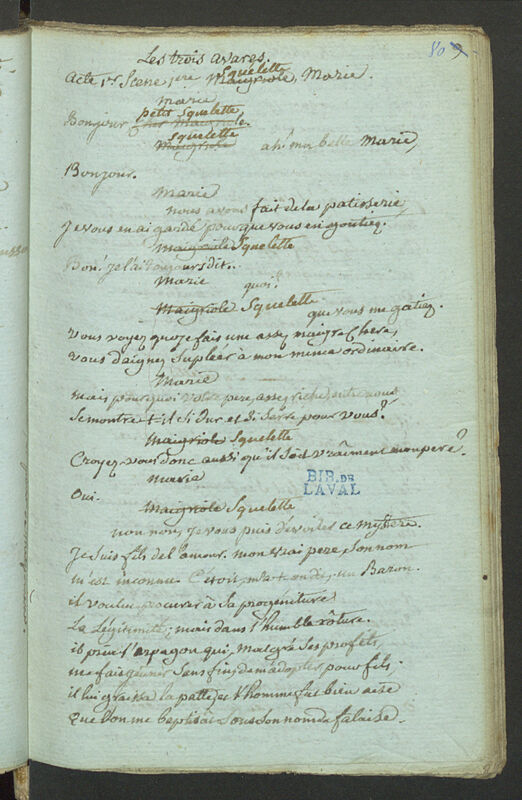 80 9
Les trois avares.
Squelette
Acte 1er Scene 1ere Maigriole, Marie.
Marie
petit Squelette
Bonjour cher Maigriole.
Squelette
Maigriole ah! ma belle Marie,
Bonjour.
Marie
nous avons fait de la patisserie,
Je vous en ai gardé pour que vous en goutiez.
Maigriole Squelette
Bon! je l'ai toujours dit.
Marie quoi?
Maigriole Squelette que vous me gâtiez.
Vous voyez que je fais une assez maigre chere,
vous daignez supléer à mon mince ordinaire.
Marie
mais pourquoi votre pere, assez riche, entre nous
Se montre t-il si Dur et Si Serré pour vous?
Maigriole Squelette
Croyez vous donc aussi qu'il soit vraîment mon pere?
Marie
Oui.
Maigriole Squelette
non non, je vous puis dévoiler ce mystere.
Je Suis fils de l'amour. mon vrai pere, son nom
m'est inconnu. C'étoit, m'a-t-on dit, un Baron.
il voulut procurer à Sa progéniture
La Légitimité; mais dans l'humble rôture.
il prit l'arpagon qui, malgré ses profits,
me fais jeuner sans fin, de m'adopter pour fils.
il lui graissa la patte, et l'homme fut bien aise
Que l'on me baptisât sous son nom de falaise.
BIB. DE
LAVAL